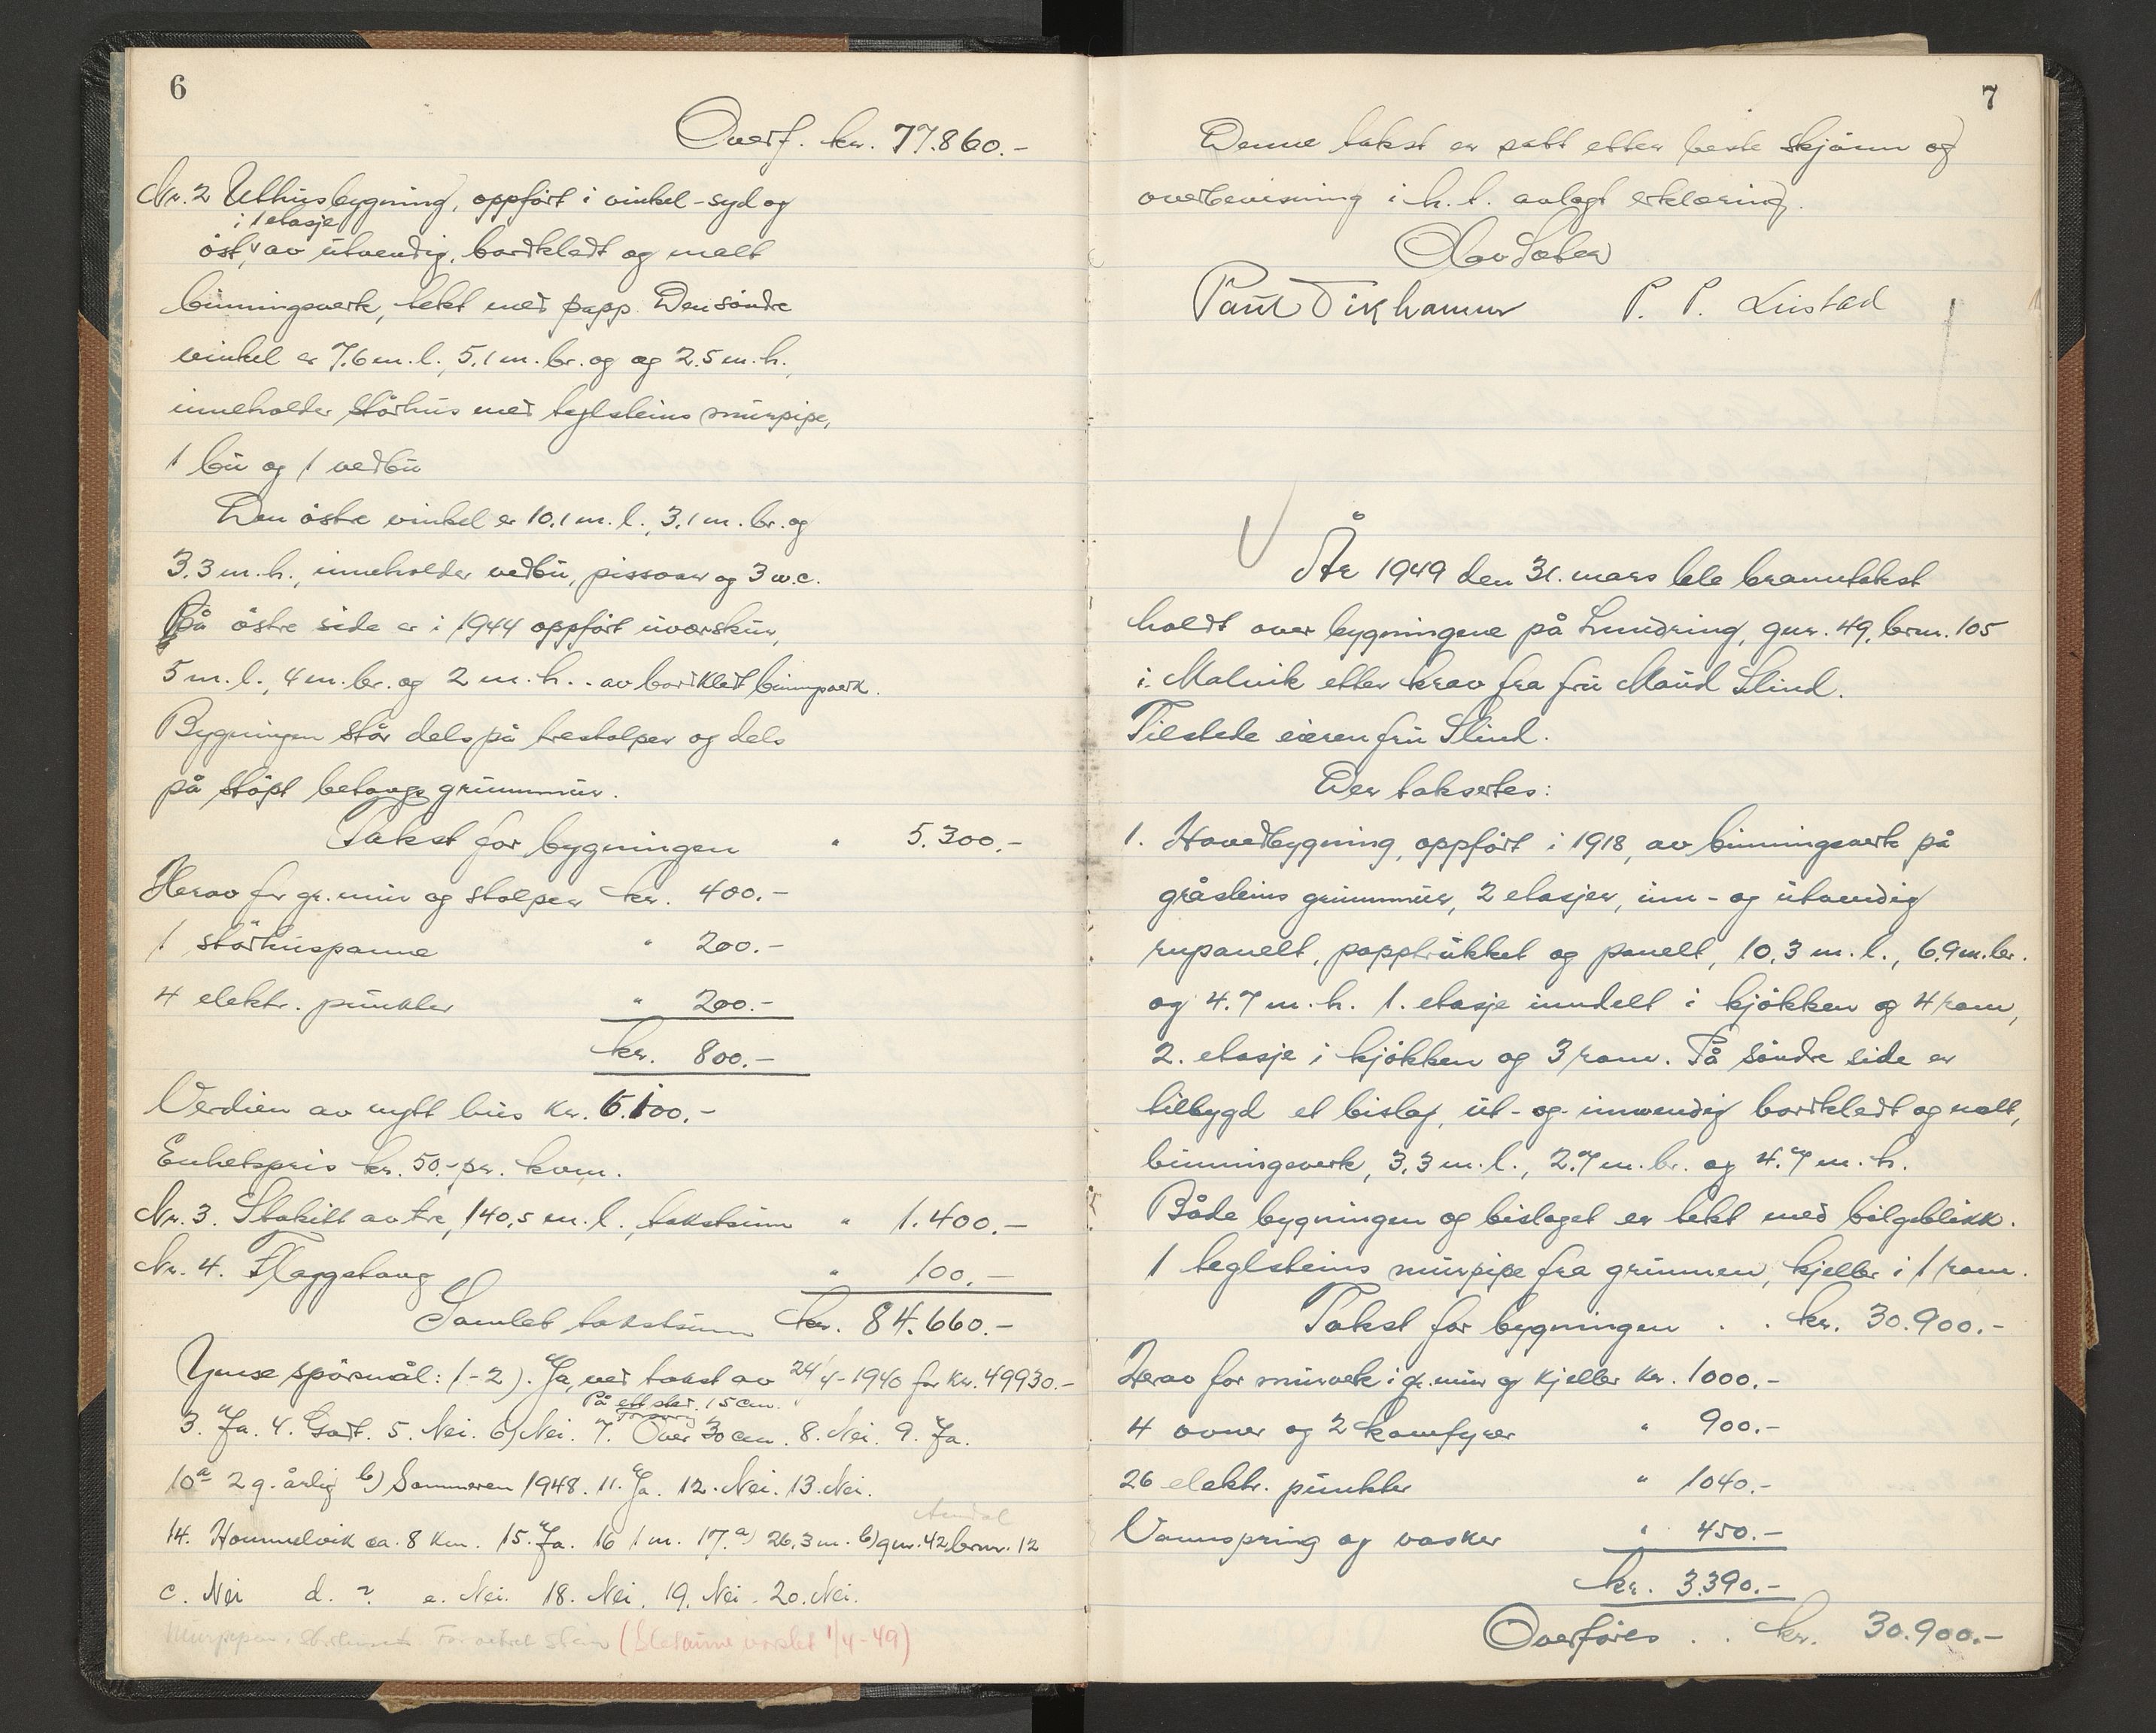 6
Overf. kr. 77.860.-
Nr. 2 Uthusbygning, oppført i vinkel - syd og
i 1 etasje
öst, av utvendig, bordkledt og malt
binningsverk, tekt med papp. Den söndre
vinkel er 7.6 m. l., 5.1 m. br. og og 2.5 m. h.,
inneholder störhus med teglsteins murpipe,
1 bu og 1 vedbu
Den östre vinkel er 10.1 m. l., 3.1 m. br. og
3.3 m. h., inneholder vedbu, pissoar og 3 w.c.
På östre side er i 1944 oppfört uværskur,
5 m. l., 4 m. br. og 2 m. h. . av bordkledt binningsverk.
Bygningen står dels på trestolper og dels
på stöpt betongs grunnmur.
Takst for bygningen " 5.300.-
Herav for gr. mur og stolper kr. 400.-
1 störhuspanne " 200.-
4 elektr. punkter " 200.-
kr. 800.-
Verdien av nytt hus kr. 6.100.-
Enhetspris kr. 50.- pr. kvm.
Nr. 3. Stakitt av tre, 140,5 m. l., takstsum " 1.400.-
Nr. 4. Flaggstang " 100.-
Samlet takstsum kr. 84.660.-
Ymse spörsmål: 1-2). Ja, ved takst av 24/4-1940 for kr. 49930.-
På ett sted. 15 cm.
3. Ja. 4. Godt. 5. Nei. 6) Nei. 7. Over 30 cm. 8. Nei. 9. Ja.
10a 2 g. årlig b) Sommeren 1948. 11. Ja. 12. Nei. 13. Nei.
14. Hommelvik ca. 8 km. 15. Ja. 16 1 m. 17. a) 26.3 m. b) gnr. 42 brnr. 12
c. Nei d. ? e. Nei. 18. Nei. 19. Nei. 20. Nei.
1/4-49)
7
Denne takst er satt etter beste skjönn og
overbevisning i h. t. avlagt erklæring.
Olav Sæter
P. P. Lustad
År 1949 den 31. mars ble branntakst
holdt over bygningene på Lundring, gnr. 49, brnr. 105
i Malvik etter krav fra fru Maud Slind.
Tilstede eieren fru Slind.
Der taksertes:
1. Hovedbygning, oppfört i 1918, av binningsverk på
gråsteins grunnmur, 2 etasjer, inn- og utvendig
rupanelt, papptrukket og panelt, 10.3 m. l., 6.9 m. br.
og 4.7 m. h. 1. etasje inndelt i kjökken og 4 rom,
2. etasje i kjökken og 3 rom. På söndre side er
tilbygd et bislag, ut- og innvendig bordkledt og malt,
binningsverk, 3.3 m. l., 2.7 m. br. og 4.7 m. h.
Både bygningen og bislaget er tekt med bölgeblikk.
1 teglsteins murpipe fra grunnen, kjeller i 1 rom.
Takst for bygningen . . kr. 30.900.-
Herav for murverk i gr. mur og kjeller kr. 1000.-
4 ovner og 2 komfyrer " 900.-
26 elektr. punkter " 1040.-
Vannspring og vasker " 450.-
kr. 3.390.-
Overföres . . kr. 30.900.-